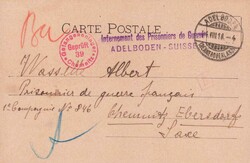 CARTE POSTALE
Internement des Prisonniers de Guerre
ADELBODEN - SUISSE
ADELBODEN
Geprüft
Wassette Albert
Prisonnier de guerre français
1e Compagnie No 846
Chemnitz Ebersdorf
Saxe